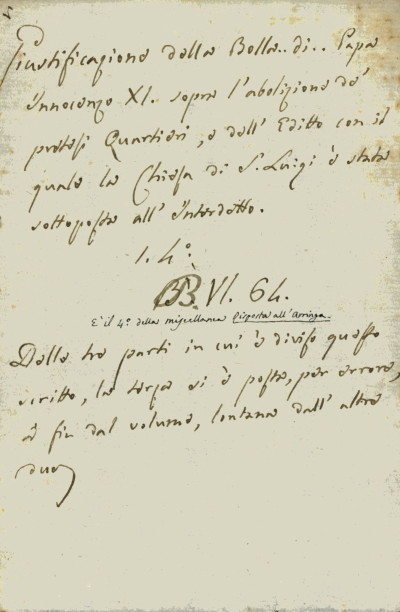 Giustificazione della Bolla.. di.. Papa
Innocenzo XI. sopra l'abolizione de'
pretesi Quartieri, e dell' Editto con il
quale la Chiesa di S. Luigi è stata
sottoposta all' Interdetto.
1. 4°.
BB. VI. 64.
È il 4° della miscellanea Risposta all'Arringa.
Delle tre parti in cui è diviso questo
scritto, la terza si è posta, per errore,
in fin dal volume, lontana dall' altre
due